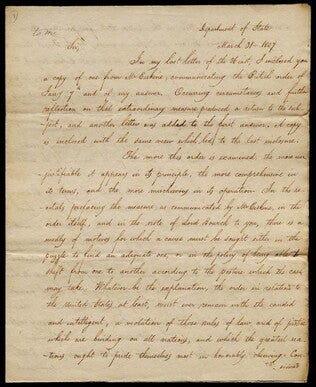 Department of State
March 31. 1807
Sir,
In my last letter of the 26th, I inclosed you
a copy of one from Mr Erskine, communicating the British order of
Jany 7th and of my answer. Occurring circumstances and further
reflection on that extraordinary measure produced a return to the sub-
ject, and another letter was added to the first answer. A copy
is inclosed with the same view which led to the last inclosure.
The more this order is examined, the more un-
justifiable it appears in its principle, the more comprehensive in
its terms, and the more mischievous in its operation. In the re-
citals prefacing the measure, as communicated by Mr Erskine, in the
order itself, and in the note of Lord Howick to you, there is a
medley of motives for which a cause must be sought either in the
puzzle to find an adequate one, or in the policy of being able to
shift from one to another according to the posture which the case
may take. Whatever be the explanation, the order in relation to
the United States at least, must ever remain with the candid
and intelligent, a violation of those rules of law and of justice
which are binding on all nations, and which the greatest na-
tions ought to pride themselves most in honorably observing.